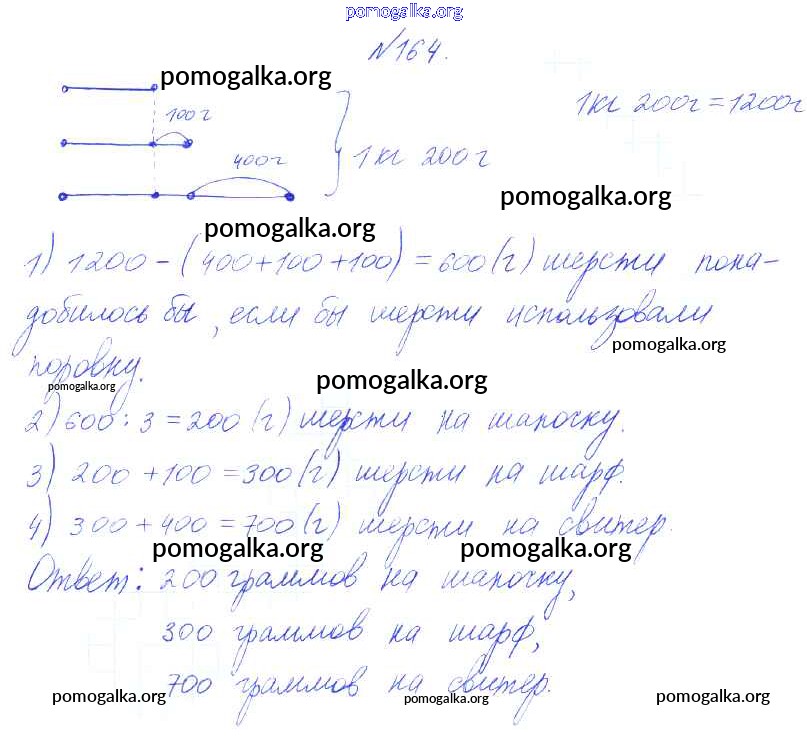 pomogalka.org
№164.
pomogalka.org
100г
1кг 200г = 1200г
400г
1кг 200г
pomogalka.org
pomogalka.org
1) 1200 - (400+100+100) = 600 (г) шерсти пона-
добилось бы, если бы шерсти использовали
pomogalka.org
поровну.
pomogalka.org
pomogalka.org
2) 600 : 3 = 200 (г) шерсти на шапочку.
3) 200 + 100 = 300 (г) шерсти на шарф.
4) 300 + 400 = 700 (г) шерсти на свитер.
pomogalka.org pomogalka.org
Ответ: 200 граммов на шапочку,
300 граммов на шарф,
700 граммов на свитер.
pomogalka.org pomogalka.org pomogalka.org